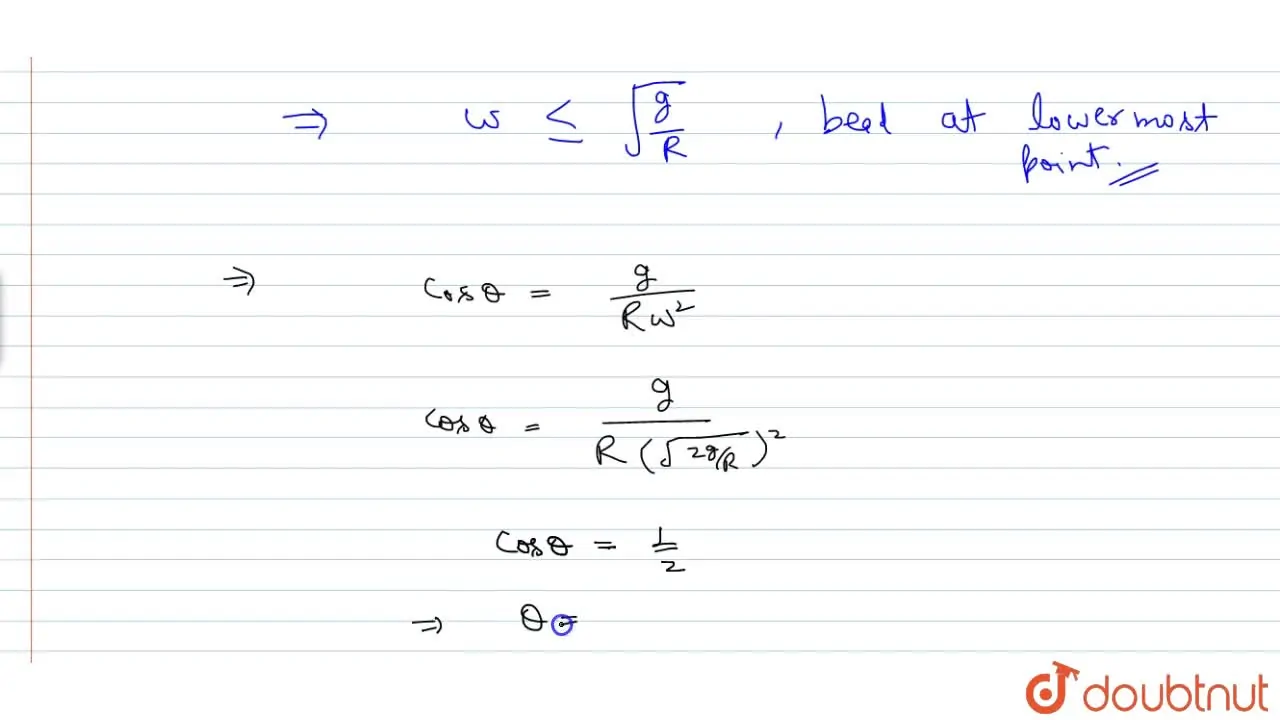 ⇒ w ≤ √(g/R) , bead at lowermost
point.
⇒ cosθ = g/(Rw²)
cosθ = g/(R(√(2g/R))²)
cosθ = 1/2
⇒ θ =
doubtnut